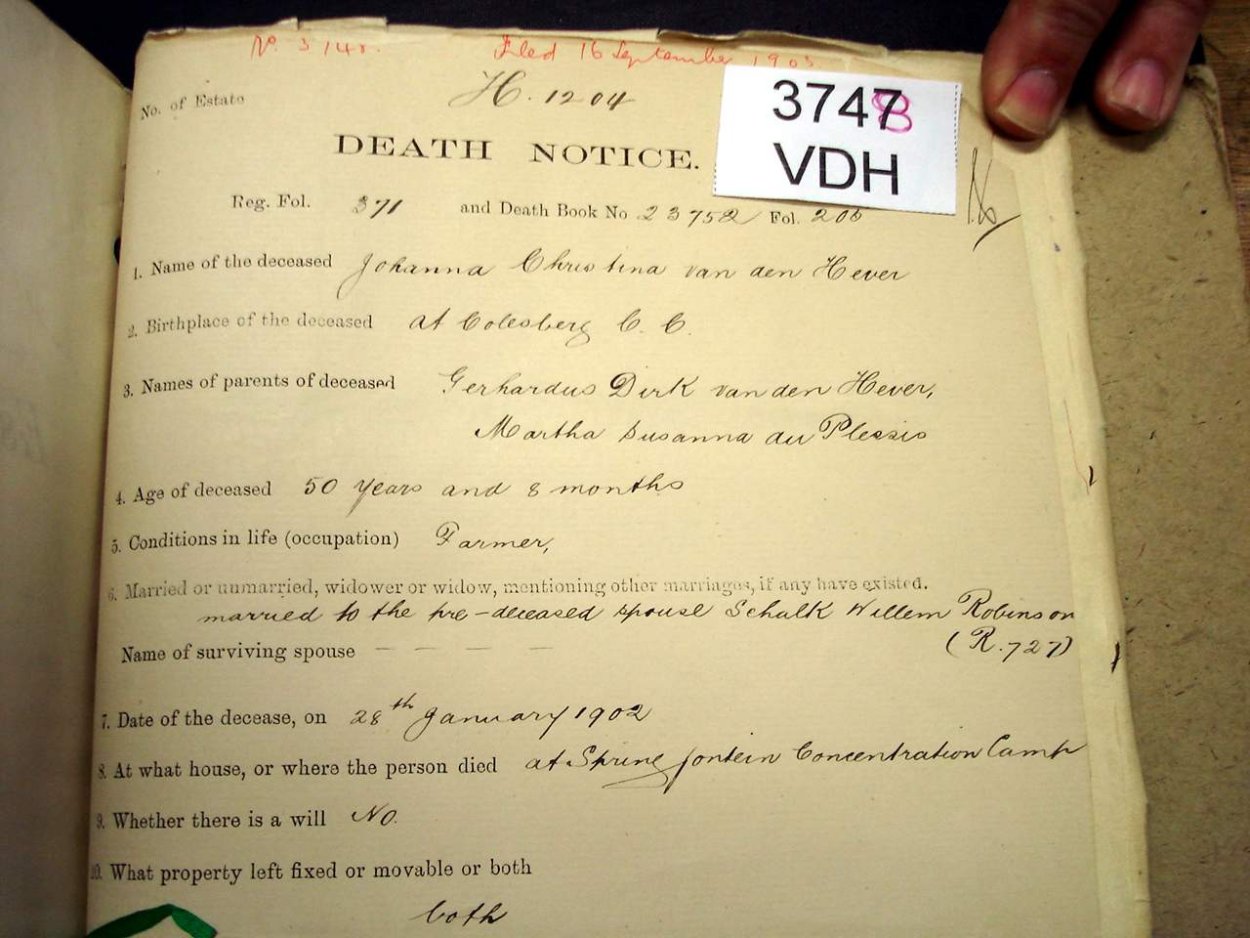 No. 3148. Filed 16 September 1903
No. of Estate H. 1204
37478
VDH
DEATH NOTICE.
Reg. Fol. 371 and Death Book No 23752 Fol. 205
1. Name of the deceased Johanna Christina van den Hever
2. Birthplace of the deceased at Colesberg C. C.
3. Names of parents of deceased Gerhardus Dirk van den Hever,
Martha Susanna du Plessis
4. Age of deceased 50 years and 8 months
5. Conditions in life (occupation) Farmer,
6. Married or unmarried, widower or widow, mentioning other marriages, if any have existed.
married to the pre-deceased spouse Schalk Willem Robinson
Name of surviving spouse — — — — (R. 727)
7. Date of the decease, on 28th January 1902
8. At what house, or where the person died at Springfontein Concentration Camp
9. Whether there is a will No.
10. What property left fixed or movable or both
both